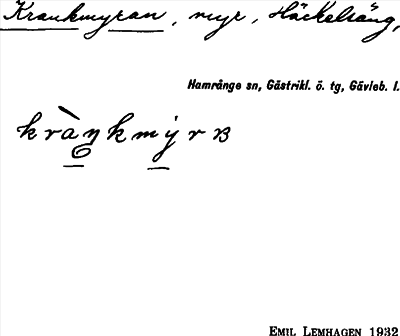 Krankmyran, myr, Häckelsäng,
Hamrånge sn, Gästrikl. ö. tg, Gävleb. l.
kràŋkmy̆rʙ
EMIL LEMHAGEN 1932